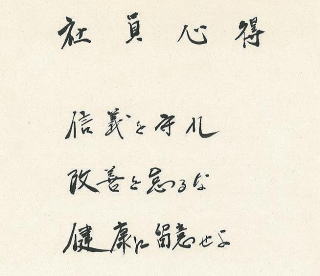 社員心得
信義を守れ
改善を怠るな
健康に留意せよ